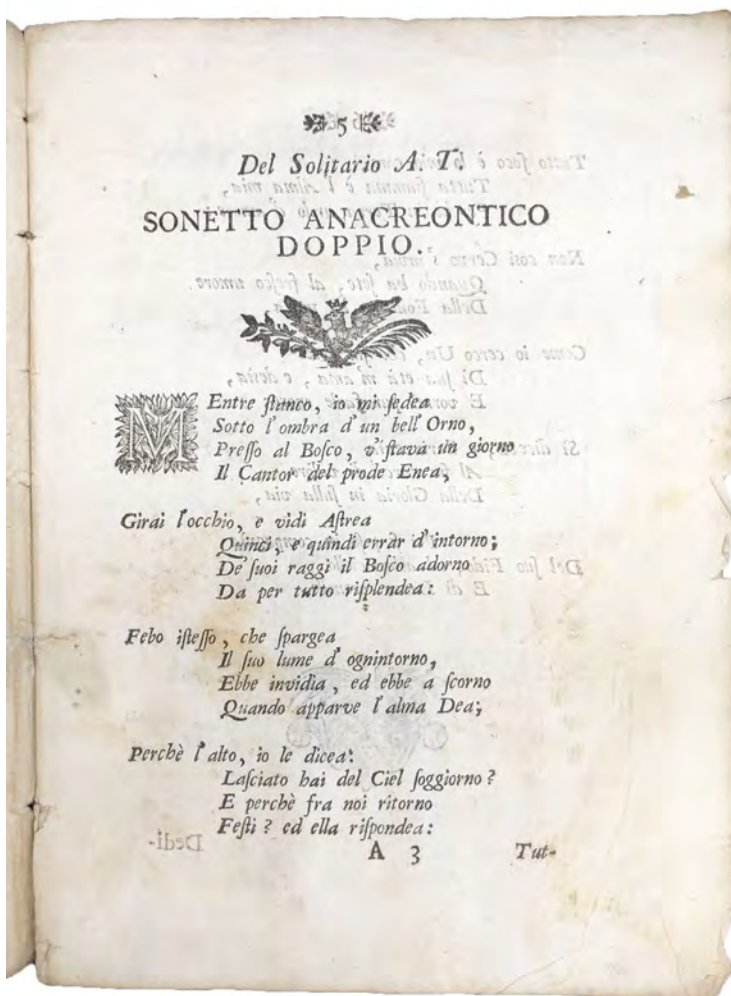 5
Del Solitario A. T.
SONETTO ANACREONTICO
DOPPIO.
MEntre stanco, io mi sedea
Sotto l'ombra d'un bell' Orno,
Presso al Bosco, v' stava un giorno
Il Cantor del prode Enea;
Girai l'occhio, e vidi Astrea
Quinci, e quindi errar d'intorno;
De' suoi raggi il Bosco adorno
Da per tutto risplendea:
Febo istesso, che spargea
Il suo lume d' ognintorno,
Ebbe invidia, ed ebbe a scorno
Quando apparve l'alma Dea;
Perchè l'alto, io le dicea:
Lasciato hai del Ciel soggiorno?
E perchè fra noi ritorno
Festi? ed ella rispondea:
A 3
Tut-